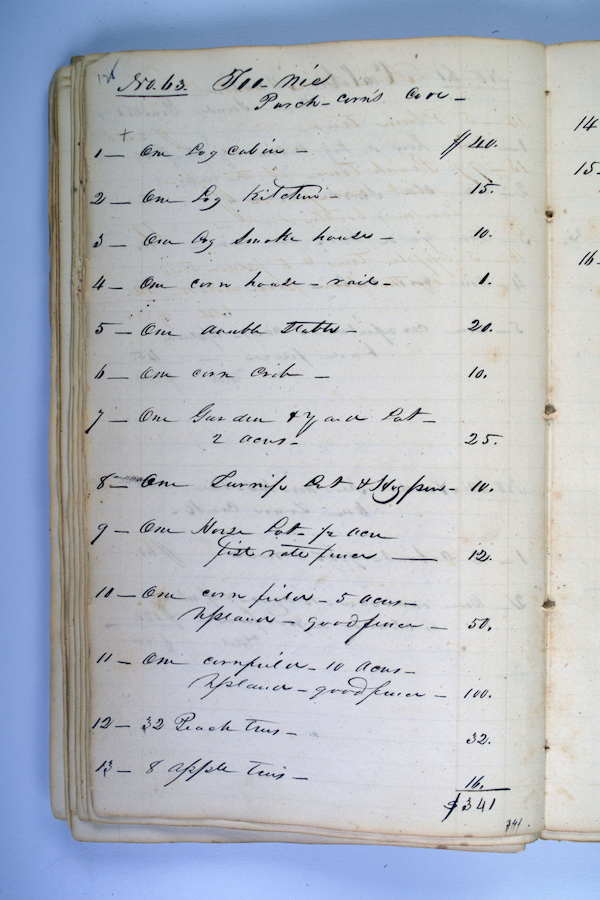 126
No. 63. Too-nie
Parch-corn's Cove -
1 - One Log cabin - $40.
2 - One Log Kitchen - 15.
3 - One Log Smoke house - 10.
4 - One corn house - rail - 1.
5 - One double Stable - 20.
6 - One corn Crib - 10.
7 - One Garden & Yard Lot -
2 acres - 25.
8 - One Turnip Lot & Hogpen - 10.
9 - One Horse Lot - 1/2 acre
fist rate fence - 12.
10 - One corn field - 5 acres -
Upland - good fence - 50.
11 - One cornfield - 10 acres -
Upland - good fence - 100.
12 - 32 Peach trees - 32.
13 - 8 apple trees - 16.
$341
341.
14
15 -
16 -